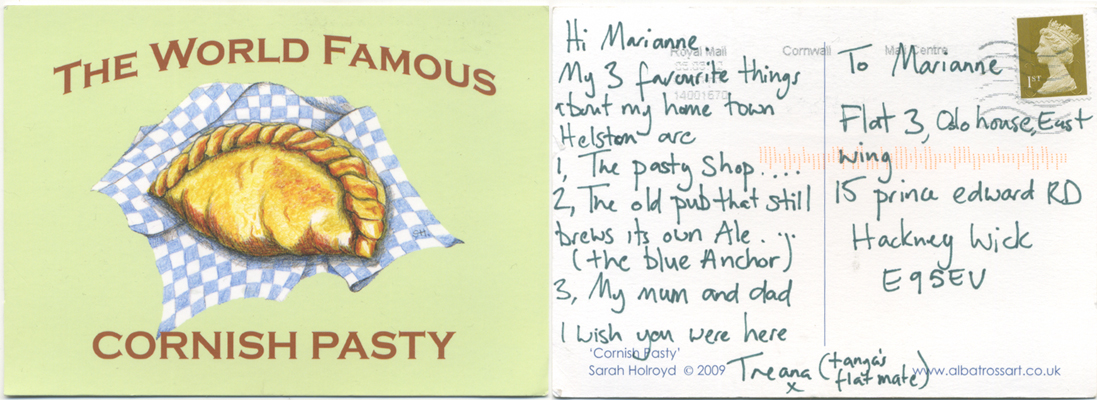 THE WORLD FAMOUS
CORNISH PASTY
Hi Marianne.
My 3 favourite things
about my home town
Helston are
1, The pasty shop....
2, The old pub that still
brews its own Ale...
(the blue Anchor)
3, My mum and dad
I wish you were here
Treana (tanya's
flatmate)
x
'Cornish Pasty'
Sarah Holroyd © 2009
www.albatrossart.co.uk
Royal Mail Cornwall Mail Centre
14001670
1ST
To Marianne
Flat 3, Oslo house, East
wing
15 prince edward RD
Hackney Wick
E95EV